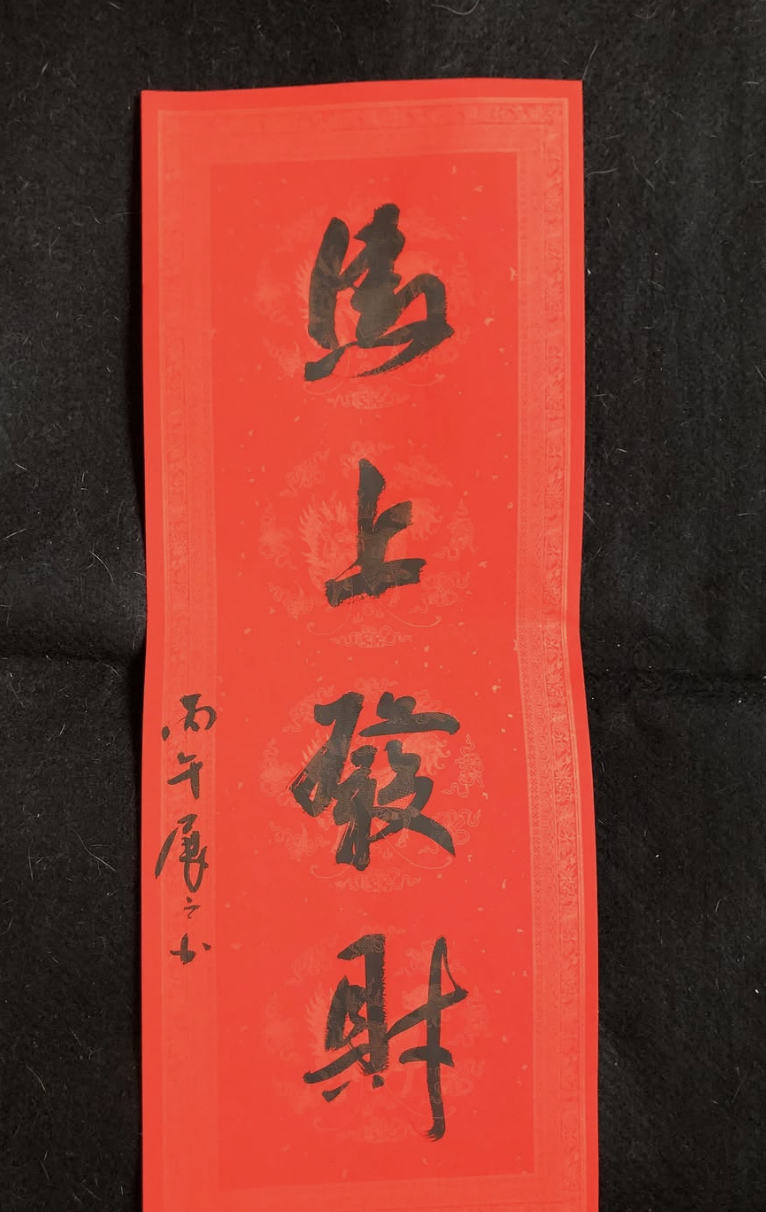 馬上發財
丙午展之书